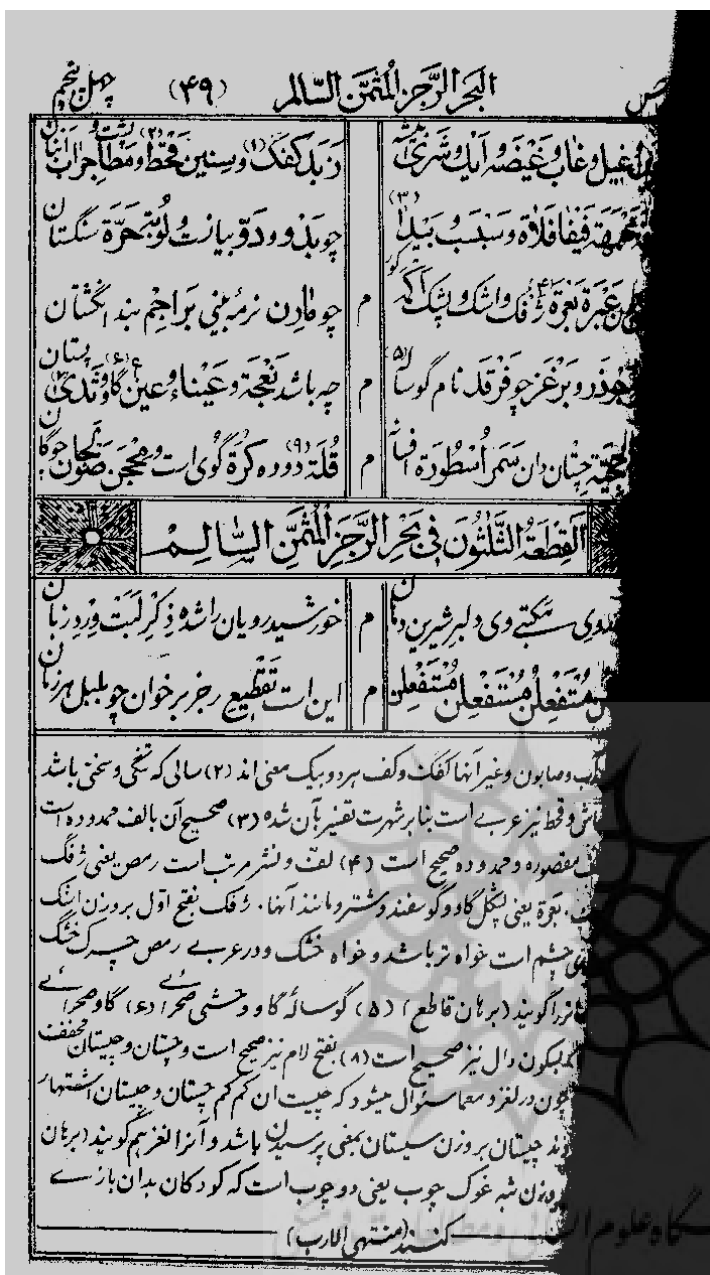 البحر الرجز المثمن السالم (۴۹) چهل پنجم
غیل و غاب و غیضه ایک و شری بیشه زبد کفک (۱) و سنین قحط (۲) و مطا جراب پشت و انبان
فیفا فلاة و سبسب و بیدا (۳) چو بذو و دوّ بیازت و لوبت حرّة سنگستان
عبرة بعرة ژفک و اشک و پشک اکمه کور م چو مارن نرمهٔ بینی براجم بند انگشتان
جوذر و برغز چو فرقد نام گوساله (۵) م چه باشد نعجة و عیناء و عین گاو (۶) و ثدی پستان
چستان دان سمر اسطورة افسانه م قلة دوده کرة (۹) گوی است و محجن صولجان چوگان
القطعة الثلثون فی بحر الرجز المثمن السالم
دلبر شیرین دهان م خورشید رویان را شده ذکر لبت ورد زبان
مستفعلن مستفعلن مستفعلن م این است تقطیع رجز برخوان چو بلبل هر زمان
و صابون و غیر آنها کفک و کف هر دو بیک معنی اند (۲) سالی که تنگی و سختی باشد
و قحط نیز عربی است بنا بر شهرت تفسیر بآن شده (۳) صحیح آن بالف ممدوده است
مقصوره و ممدوده صحیح است (۴) لف و نشر مرتب است رمص یعنی ژفک
بعرة یعنی پشکل گاو و گوسفند و شتر و مانند آنها . ژفک بفتح اول بر وزن اشک
چشم است خواه تر باشد و خواه خشک و در عربی رمص چرک خشک
را گویند (برهان قاطع) (۵) گوساله گاو وحشی صحرائی (۶) گاو صحرائی
بسکون دال نیز صحیح است (۸) بفتح لام نیز صحیح است و چستان و چیستان مخفف
چون در لغز و معما سئوال میشود که چیست ان کم کم چستان و چیستان اشتهار
چیستان بر وزن سیستان بمعنی پرسیدن باشد و آنرا لغز هم گویند (برهان
بر وزن ثبه غوک چوب یعنی دو چوب است که کودکان بدان بازی
کنند (منتهی الارب)